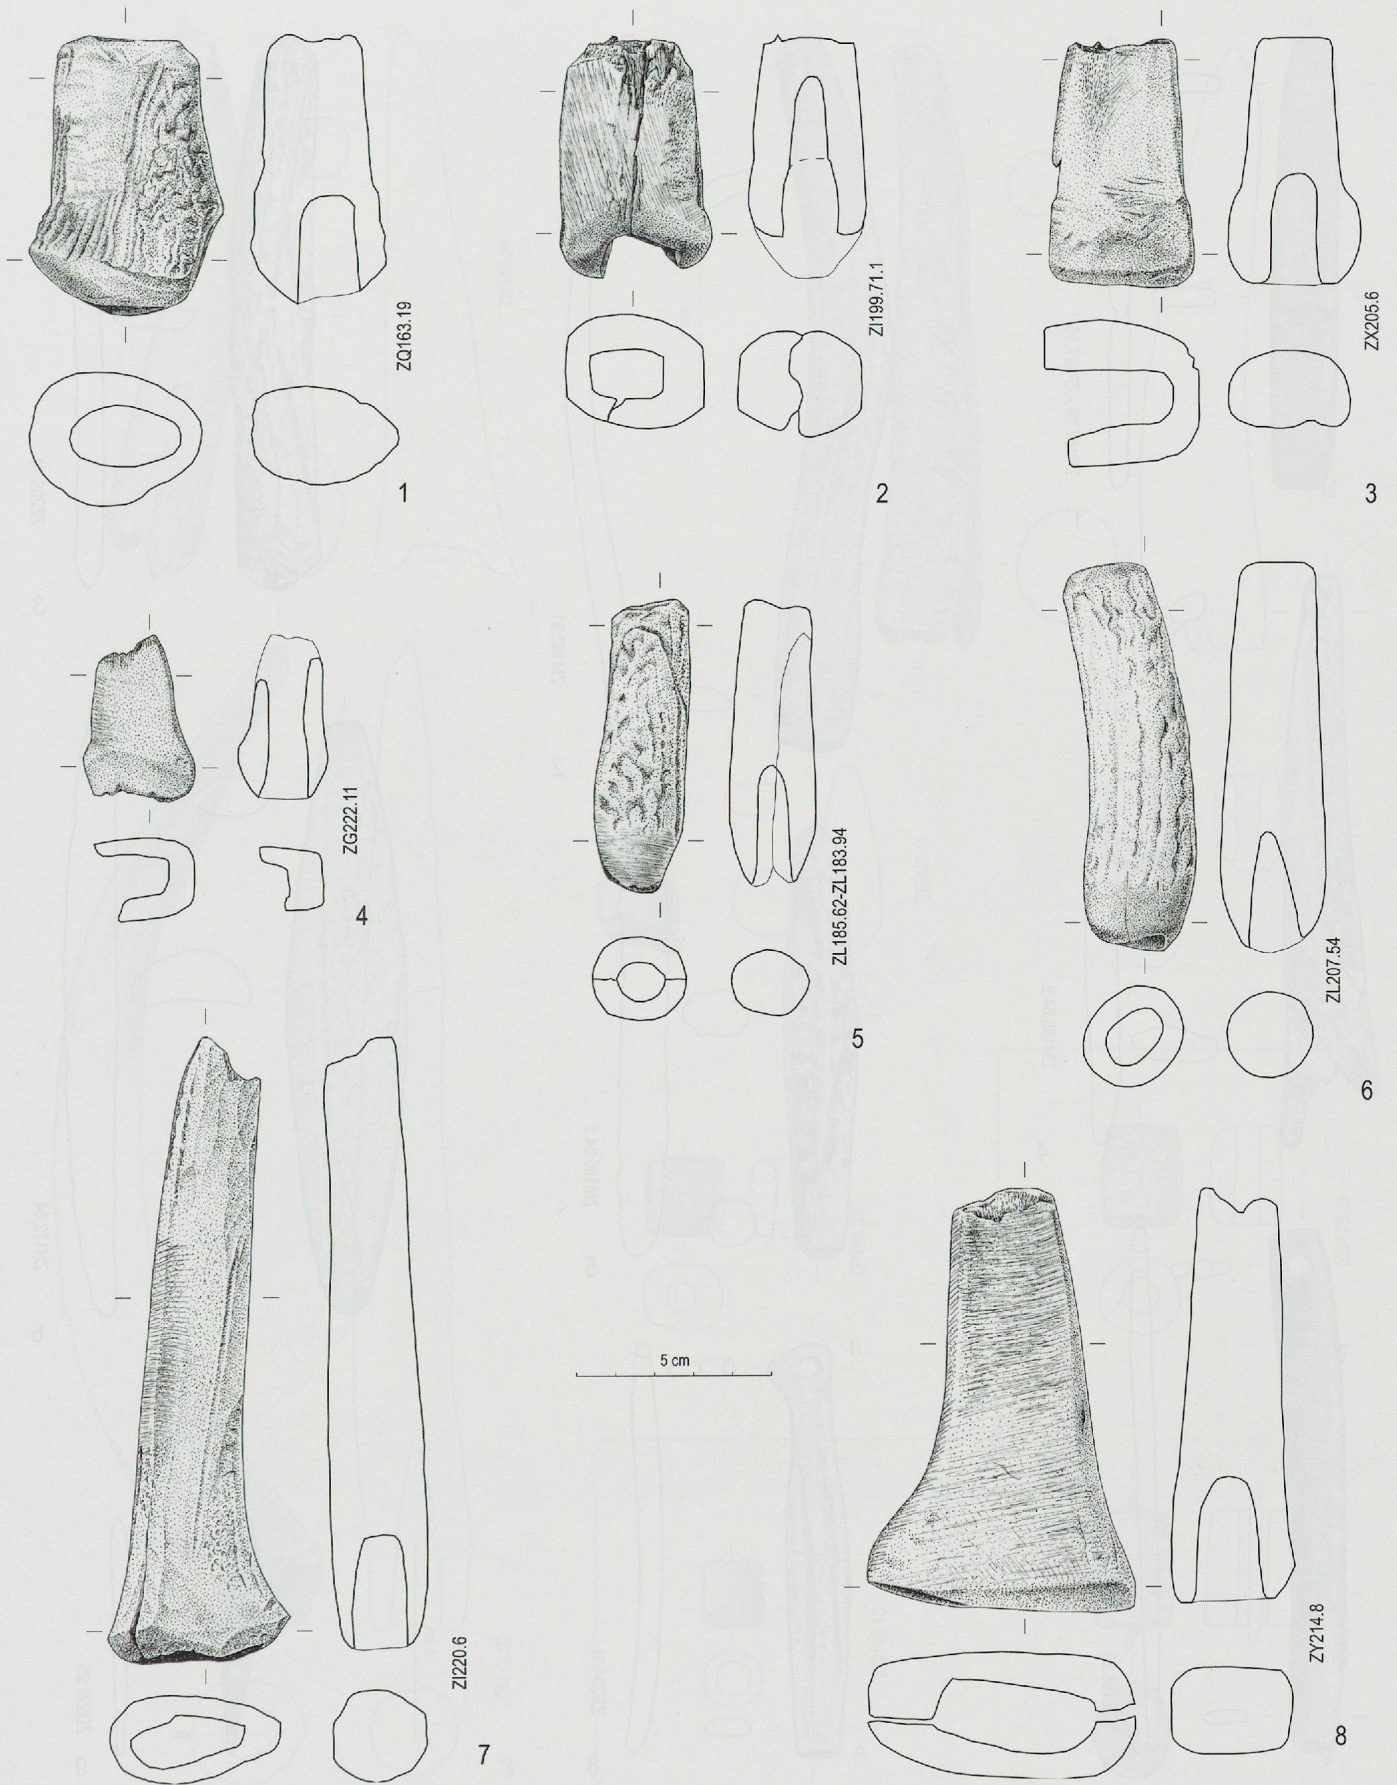 ZQ163.19
1
ZI199.71.1
2
ZX205.6
3
ZG222.11
4
ZL185.62-ZL183.94
5
ZL207.54
6
ZI220.6
7
5 cm
ZY214.8
8